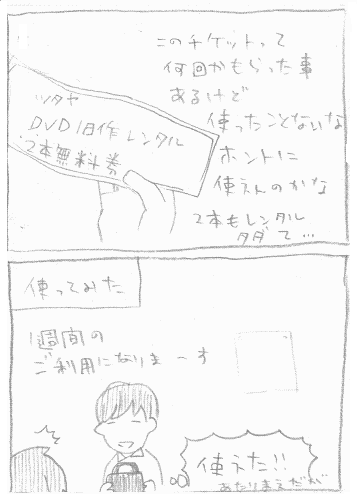 このチケットって
何回かもらった事
あるけど
使ったことないな
ホントに
使えんのかな
2本もレンタル
タダで…
ツタヤ
DVD旧作レンタル
2本無料券
使ってみた
1週間の
ご利用になりまーす
使えた!!
あたりまえだが